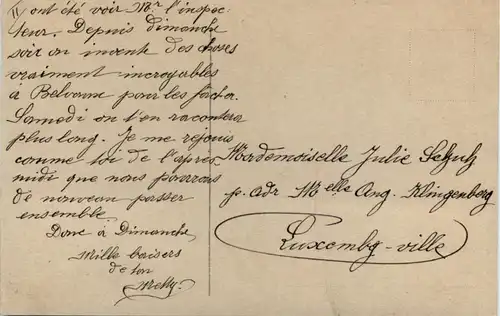 Il ont été voir Mr. l'inspec-
teur. Depuis dimanche
soir on invente des choses
vraiment incroyables
à Belvaux pour les fâcher.
Samedi on t'en racontera
plus long. Je me réjouis
comme toi de l'après-
midi que nous pourrons
de nouveau passer
ensemble.
Donc à Dimanche,
Mille baisers
de ton
Melly.
Mademoiselle Julie Schulz
p. adr Melle Ang. Klingenberg
Luxembg-ville